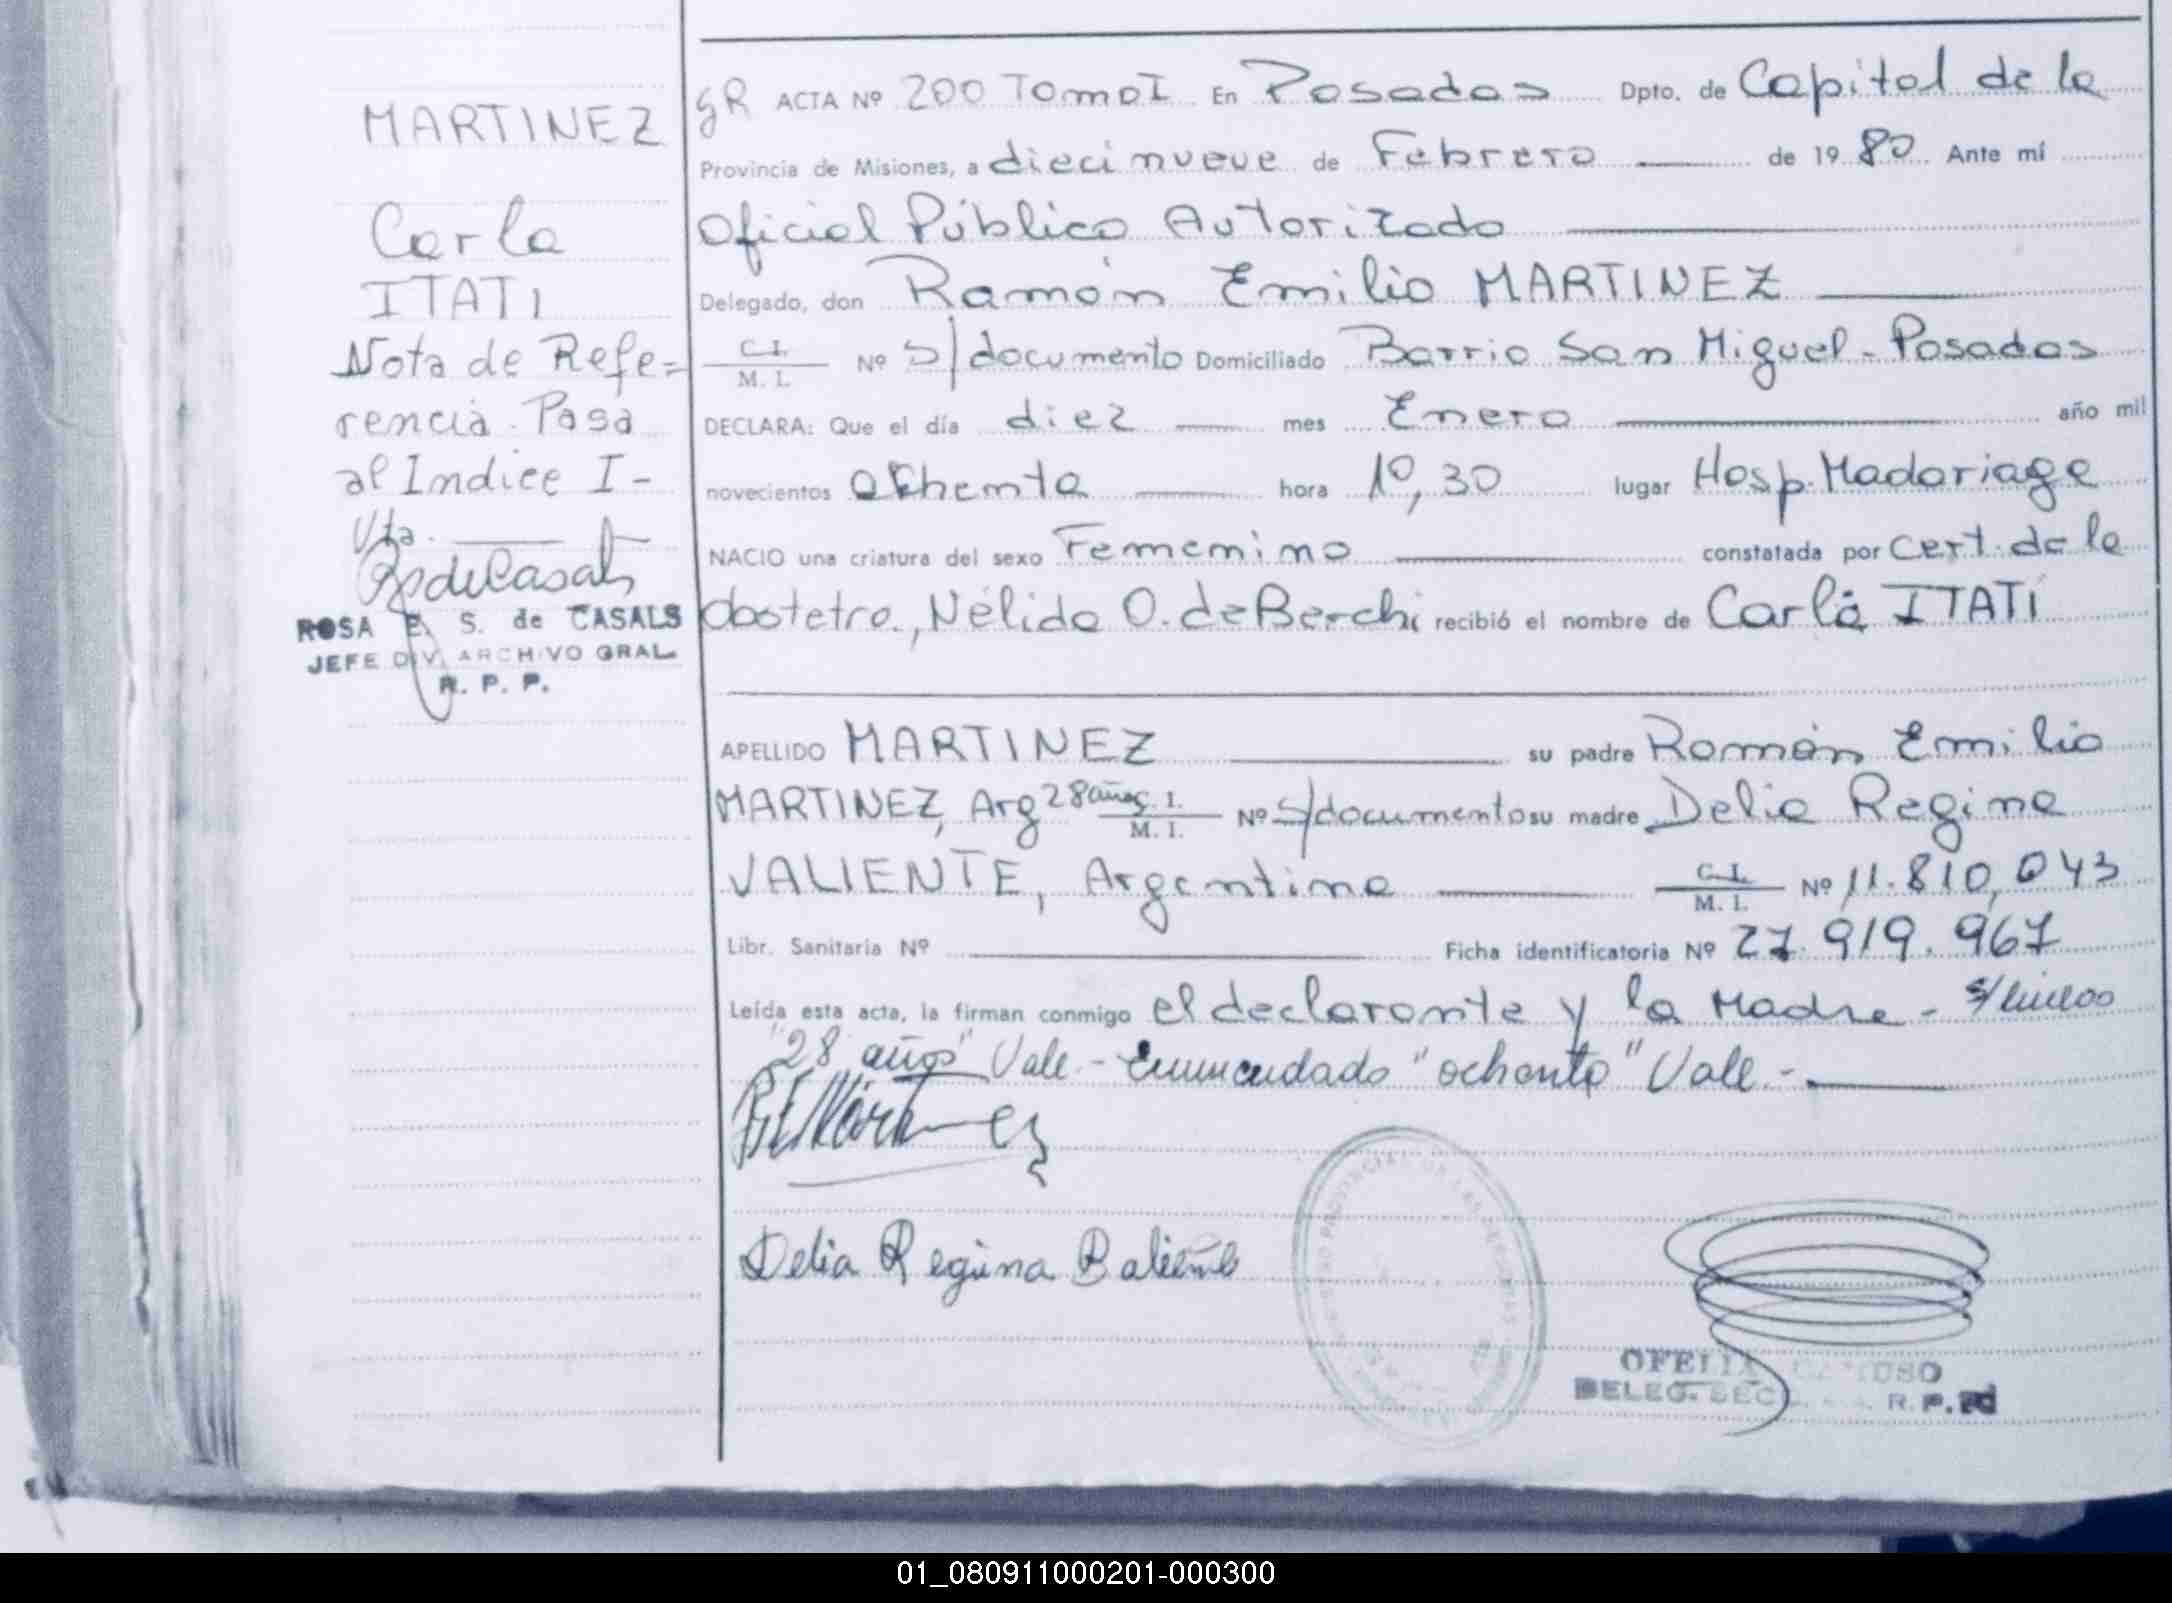 MARTINEZ
Carla
ITATI
Nota de Refe=
rencia. Pasa
al Indice I-
Vta.
ROSA E. S. de CASALS
JEFE DIV. ARCHIVO GRAL.
R. P. P.
gR ACTA Nº 200 Tomo I En Posadas Dpto. de Capital de la
Provincia de Misiones, a diecinueve de Febrero de 1980 Ante mí
Oficial Público Autorizado
Delegado, don Ramón Emilio MARTINEZ
C. I. / M. I. Nº S/documento Domiciliado Barrio San Miguel - Posadas
DECLARA: Que el día diez mes Enero año mil
novecientos ochenta hora 10,30 lugar Hosp. Madariaga
NACIO una criatura del sexo Femenino constatada por cert. de la
Obstetra., Nélida O. de Berchi recibió el nombre de Carla ITATI
APELLIDO MARTINEZ su padre Ramón Emilio
MARTINEZ, Arg 28 años C. I. / M. I. Nº S/documento su madre Delia Regina
VALIENTE, Argentina C. I. / M. I. Nº 11.810,043
Libr. Sanitaria Nº Ficha identificatoria Nº 27.919.967
Leída esta acta, la firman conmigo el declarante y la Madre - s/lineas
"28 años" Vale.- Enmendado "ochenta" Vale.-
Delia Regina Baliente
R. P. P.
01_080911000201-000300